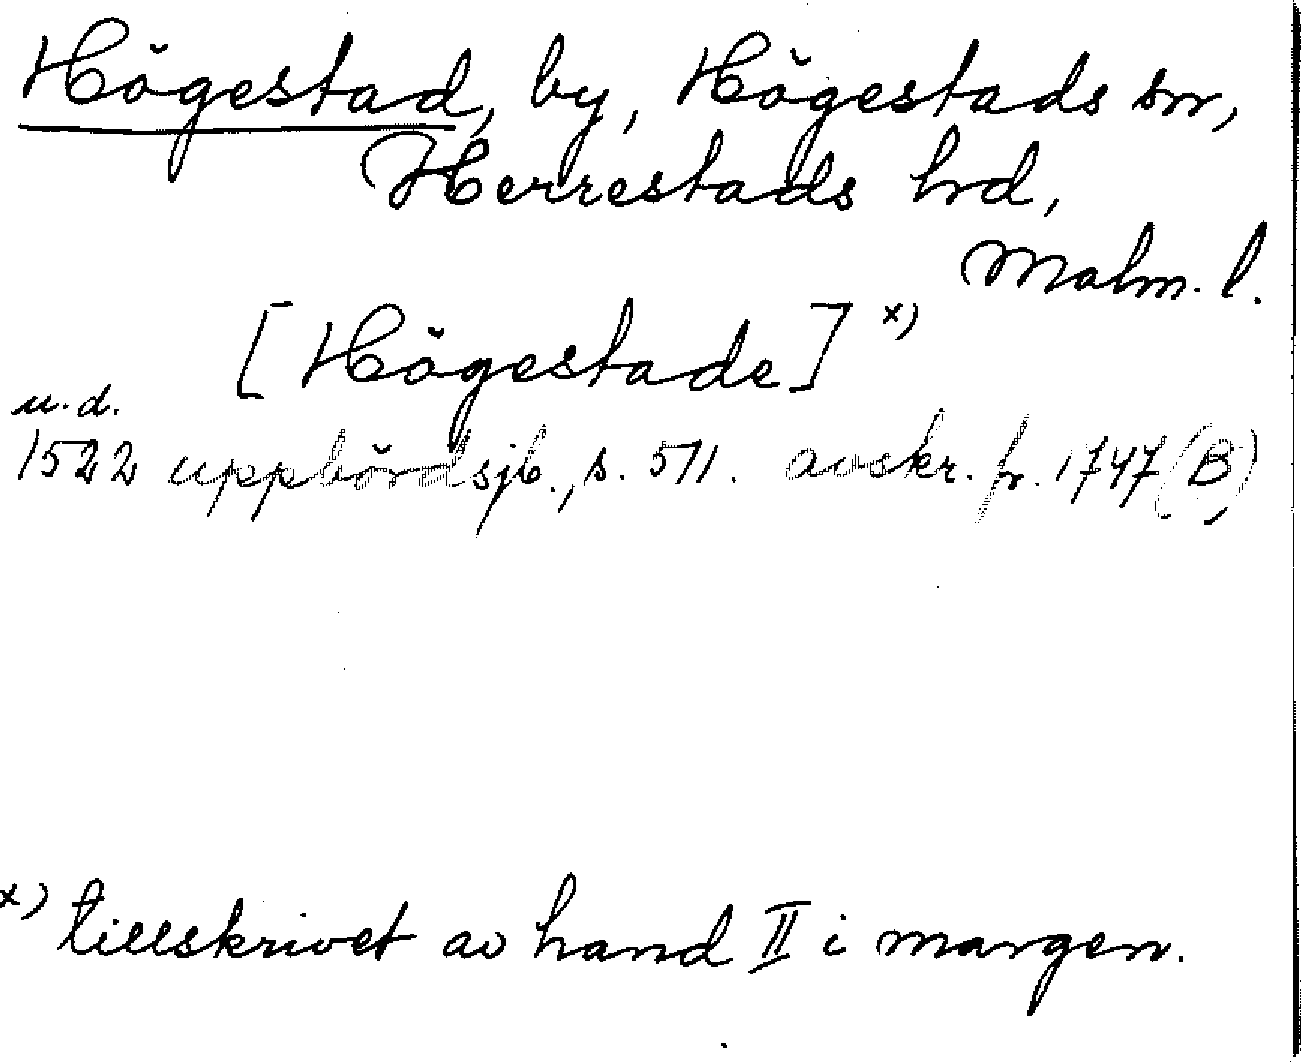 Högestad, by, Högestads sn,
Herrestads hd,
Malm. l.
[Högestade] x)
u.d.
1522 uppbördsjb., s. 571. avskr. fr. 1747 (B)
x) tillskrivet av hand II i margen.